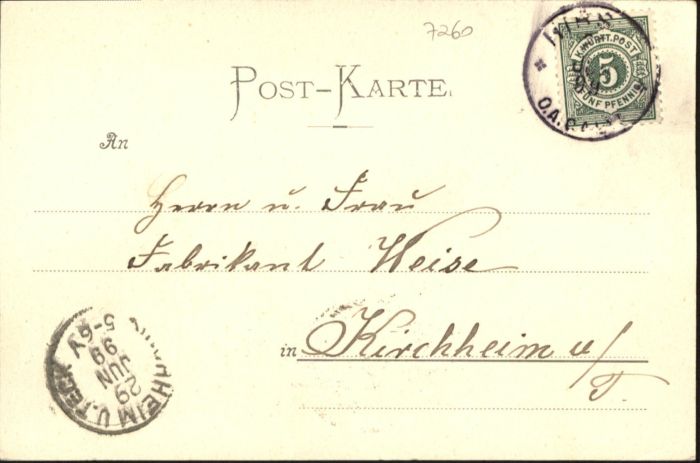 7260
K. WÜRTT. POST
5
FÜNF PFENNIG
O.A.
POST-KARTE.
An
Herrn u. Frau
Fabrikant Weise
in Kirchheim u/T.
KIRCHHEIM U. TECK
29
JUN
99
5-6 V